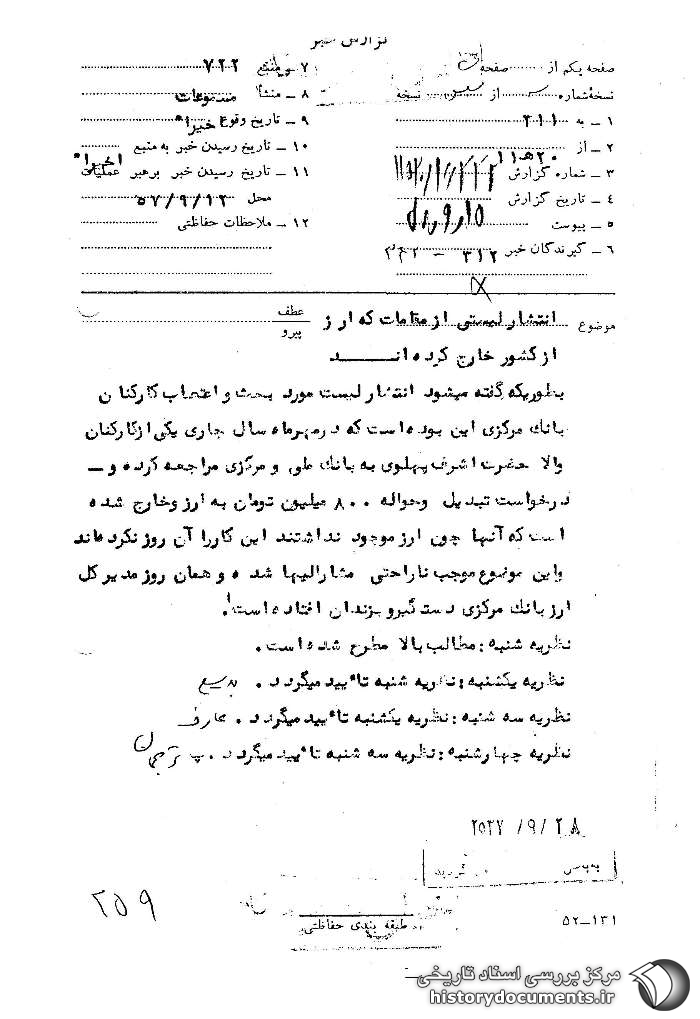 گزارش خبر
صفحه یکم از صفحه
نسخه شماره از نسخه
۱ ـ به ۳۱۱
۲ ـ از ۲۰ه۱۱
۳ ـ شماره گزارش
۴ ـ تاریخ گزارش
۵ ـ پیوست
۶ ـ گیرندگان خبر ۳۱۲ -
۷ ـ منبع ۷۲۲
۸ ـ منشأ مسموعات
۹ ـ تاریخ وقوع اخیرا"
۱۰ ـ تاریخ رسیدن خبر به منبع
۱۱ ـ تاریخ رسیدن خبر برهبر عملیات اخیرا"
محل ۵۷/۹/۱۲
۱۲ ـ ملاحظات حفاظتی
موضوع انتشار لیستی از مقامات که ارز
عطف
پیرو
از کشور خارج کرده انــــد
بطوریکه گفته میشود انتشار لیست مورد بحث و اعتصاب کارکنان
بانك مرکزی این بوده است که در مهرماه سال جاری یکی از کارکنان
والا حضرت اشرف پهلوی به بانك ملی و مرکزی مراجعه کرده و ـ
درخواست تبدیل وحواله ۸۰۰ میلیون تومان به ارز وخارج شده
است که آنها چون ارز موجود نداشتند این کاررا آن روز نکرده اند
واین موضوع موجب ناراحتی مشارالیها شده و همان روز مدیر کل
ارز بانك مرکزی دستگیر و بزندان افتاده است!
نظریه شنبه : مطالب بالا مطرح شده است .
نظریه یکشنبه : نظریه شنبه تائید میگردد . بدیع
نظریه سه شنبه : نظریه یکشنبه تائید میگردد . عارف
نظریه چهارشنبه : نظریه سه شنبه تائید میگردد . ترجمان
۲۵۳۷/۹/۲۸
۲۵۹
۵۲ـ۱۳۱
طبقه بندی حفاظتی
مرکز بررسی اسناد تاریخی
historydocuments.ir